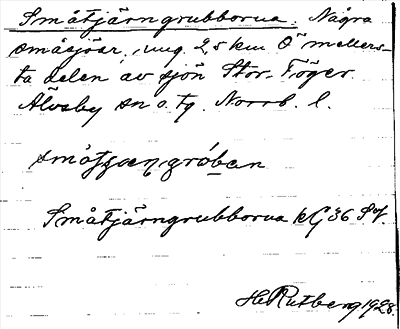 Småtjärngrubborna. Några
småsjöar, ung. 2,5 km Ö mellers-
ta delen av sjön Stor-Töger.
Älvsby sn o. tg. Norrb. l.
småtjäṇgróban
Småtjärngrubborna kG 36 SV.
H. Rutberg 1928.